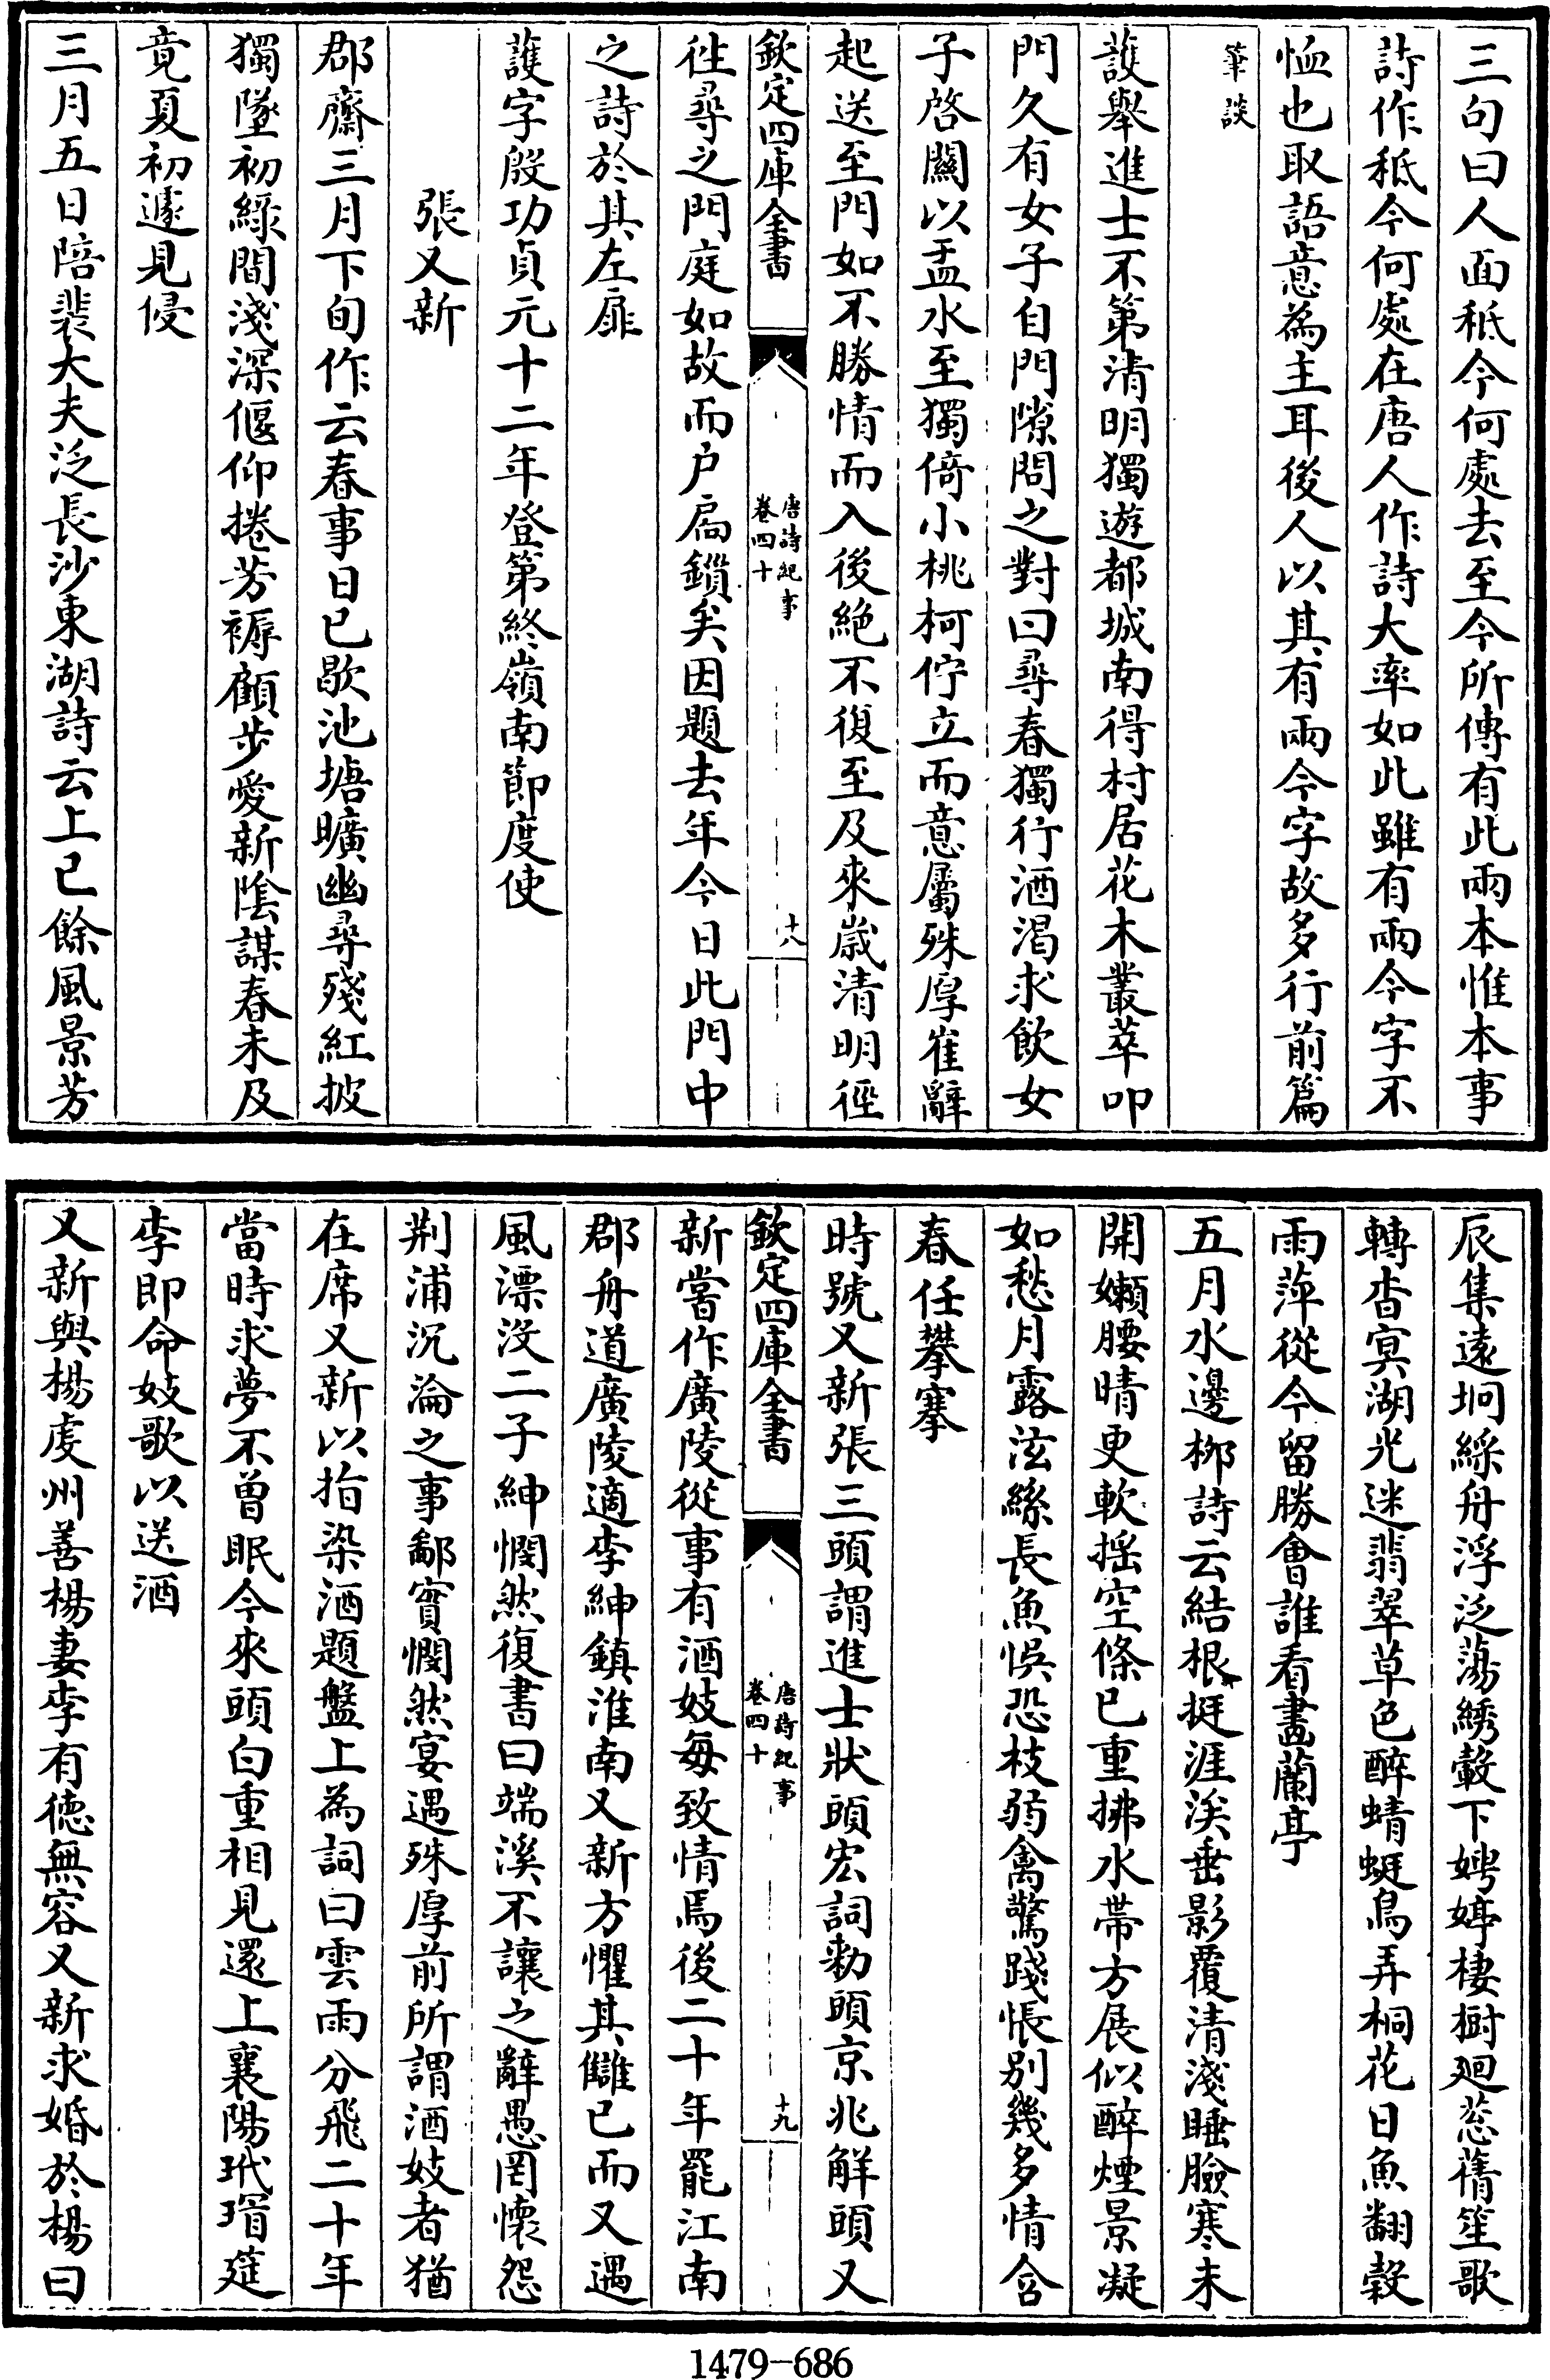 三句曰人面秪今何處去至今所傳有此兩本惟本事
詩作秪今何處在唐人作詩大率如此雖有兩今字不
恤也取語意為主耳後人以其有兩今字故多行前篇
筆談
護舉進士不第清明獨遊都城南得村居花木叢萃叩
門久有女子自門隙問之對曰尋春獨行酒渴求飲女
子啓關以盂水至獨倚小桃柯佇立而意屬殊厚崔辭
起送至門如不勝情而入後絶不復至及來歲清明徑
欽定四庫全書
唐詩紀事
卷四十
十八
徃尋之門庭如故而户扃鎻矣因題去年今日此門中
之詩於其左扉
護字殷功貞元十二年登第終嶺南節度使
張又新
郡齋三月下旬作云春事日已歇池塘曠幽尋殘紅披
獨墜初緑間淺深偃仰捲芳褥顧步愛新陰謀春未及
竟夏初遽見侵
三月五日陪裴大夫泛長沙東湖詩云上巳餘風景芳
辰集遠坰綵舟浮泛蕩綉轂下娉婷棲樹廻葱蒨笙歌
轉杳冥湖光迷翡翠草色醉蜻蜓鳥弄桐花日魚翻榖
雨萍從今留勝會誰看畫蘭亭
五月水邊栁詩云結根挺涯涘垂影覆清淺睡臉寒未
開嬾腰晴更軟揺空條已重拂水帶方展似醉煙景凝
如愁月露泫絲長魚悞恐枝弱禽驚踐悵别幾多情含
春任攀搴
時號又新張三頭謂進士狀頭宏詞勅頭京兆解頭又
欽定四庫全書
唐詩紀事
卷四十
十九
新嘗作廣陵從事有酒妓每致情焉後二十年罷江南
郡舟道廣陵適李紳鎮淮南又新方懼其讎已而又遇
風漂沒二子紳憫然復書曰端溪不讓之辭愚罔懷怨
荆浦沉淪之事鄙實憫然宴遇殊厚前所謂酒妓者猶
在席又新以指染酒題盤上為詞曰雲雨分飛二十年
當時求夢不曾眠今來頭白重相見還上襄陽玳瑁筵
李即命妓歌以送酒
又新與楊虔州善楊妻李有德無容又新求婚於楊曰
1479-686